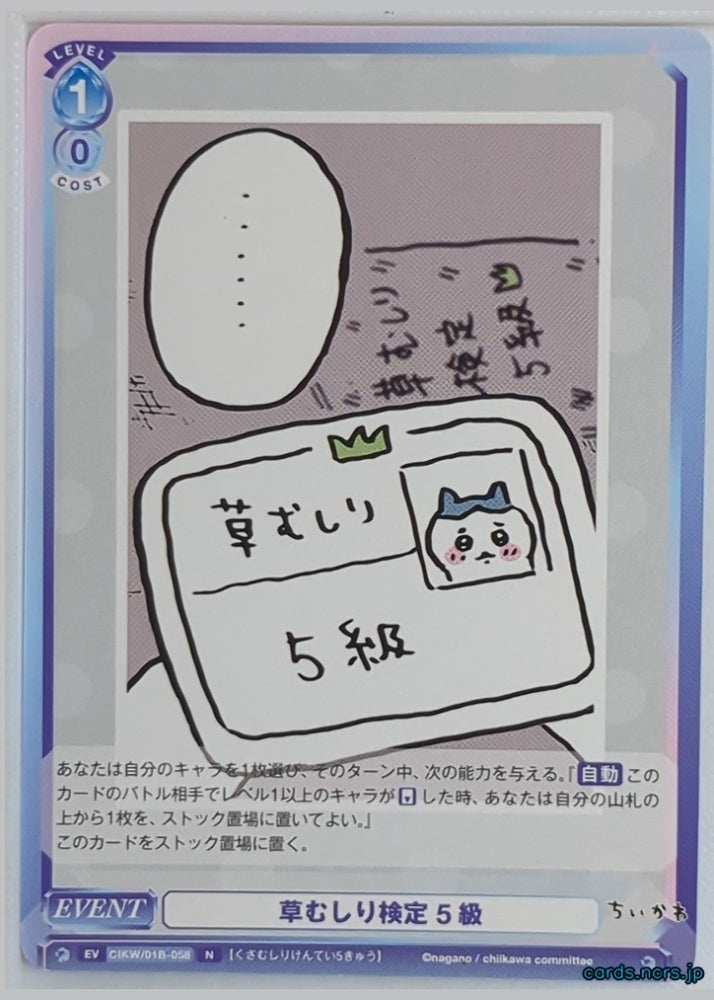 LEVEL
1
0
COST
・・・・・・
草むしり
検定
5級
草むしり
5級
あなたは自分のキャラを1枚選び、そのターン中、次の能力を与える。『自動 この
カードのバトル相手でレベル1以上のキャラが した時、あなたは自分の山札の
上から1枚を、ストック置場に置いてよい。』
このカードをストック置場に置く。
EVENT
草むしり検定5級
ちいかわ
EV CIKW/01B-058 N 【くさむしりけんてい5きゅう】 ©nagano / chiikawa committee
cards.ncrs.jp